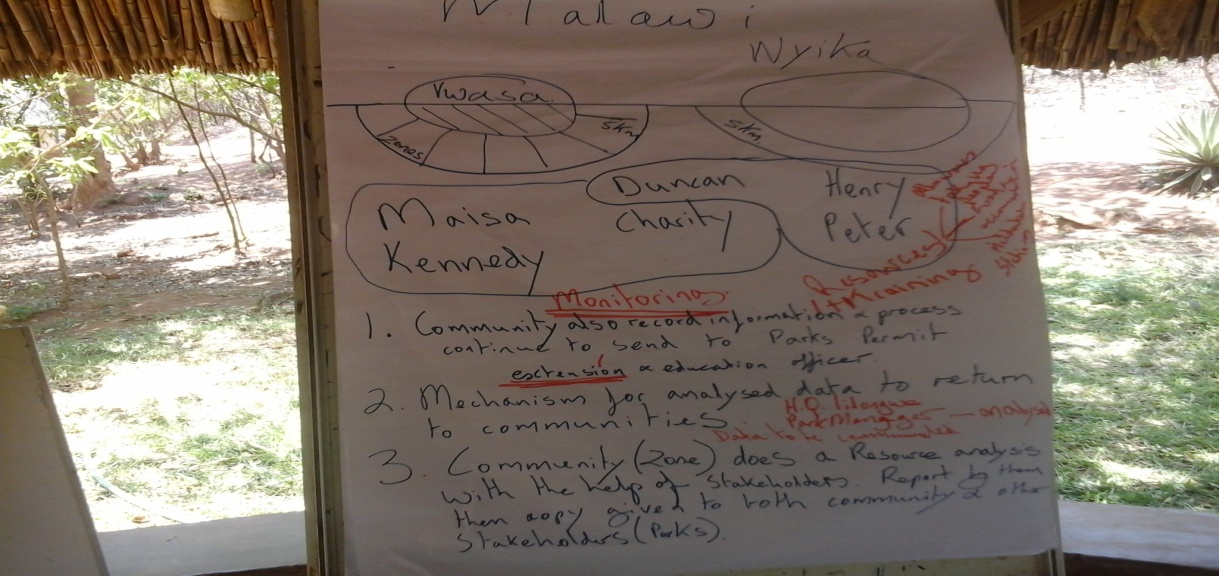 Malawi
Nyika
Vwasa
zones
5km
5km
Duncan
Henry
Maisa
Charity
Peter
Kennedy
Resources
Training
Monitoring
1. Community also record information & process
continue to send to Parks Permit
extension & education officer.
2. Mechanism for analysed data to return
to communities
H.Q Lilongwe
Park Manager — analysed
Data to be
3. Community (Zone) does a Resource analysis
with the help of Stakeholders. Report by them
then copy given to both community & other
Stakeholders (Parks).